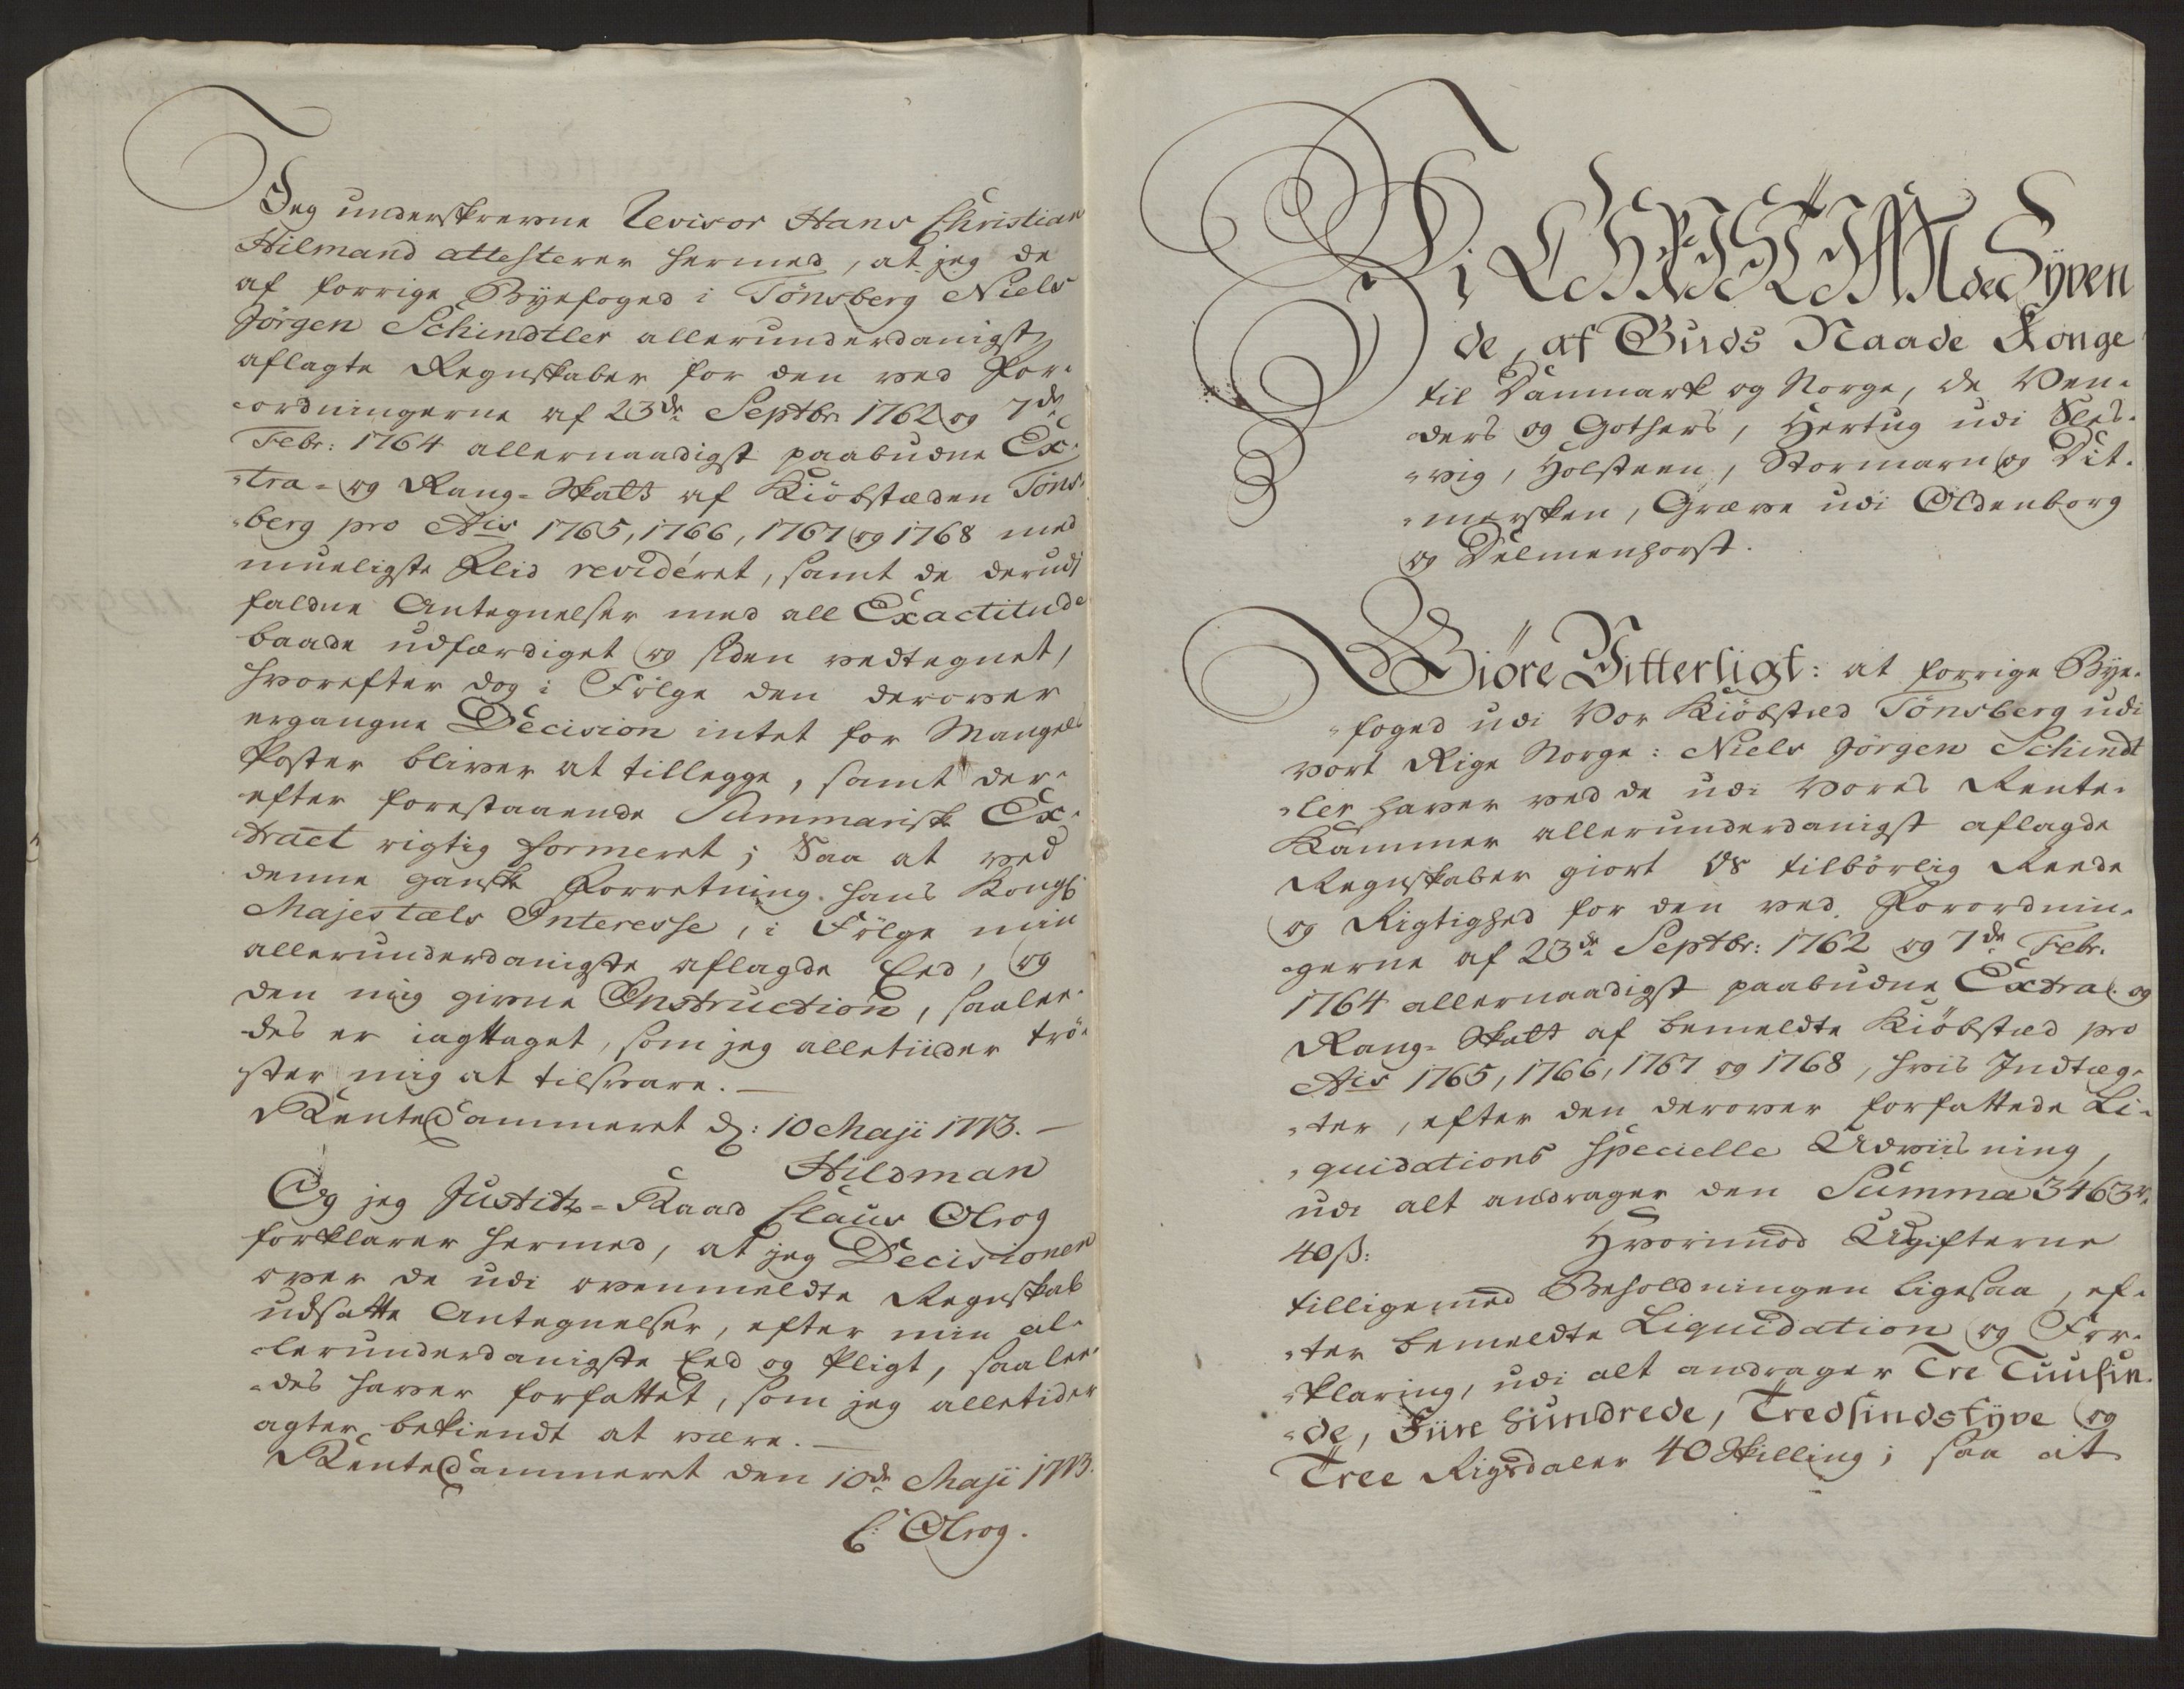 Jeg underskrevne Revisor Hans Christian
Hilmand attesterer hermed, at jeg de
af forrige Byefoged i Tönsberg Niels
Jörgen Schindtler allerunderdanigst
aflagte Regnskaber for den ved For-
-ordningerne af 23de Septbr 1762 og 7de
Febr: 1764 allernaadigst paabudne Ex-
-tra- og Rang-Skatt af Kiöbstæden Töns-
-berg pro Ais 1765, 1766, 1767 og 1768 med
mueligste Flid revidéret, samt de derudi
faldne Antegnelser med all Exactitude
baade udfærdiget og siden vedtegnet,
hvorefter dog i Fölge den derover
ergangne Decision intet for Mangels
Poster bliver at tillegge, samt der-
efter forestaaende Summarisk Ex-
tract rigtig formeret; Saa at ved
denne gansk Forretning hans Kongl:
Majestæts Interesse, i Fölge min
allerunderdanigste aflagde Eed, og
den mig givne Instruction, saale-
des er iagttaget, som jeg alletiider trö-
ster mig at tilsvare.-
RenteCammeret d: 10 Maji 1773.-
Hildman
Og jeg Justitz-Raad Claus Olrog
forklarer hermed, at jeg Decisionen
over de udi ovenmeldte Regnskab
udsatte Antegnelser, efter min al-
-lerunderdanigste Eed og Pligt, saale-
-des haver forfattet, som jeg alletider
agter bekiendt at være.-
RenteCammeret den 10de Maji 1773.
C: Olrog.
Vi CHRISTIAN den Syven
de, af Guds Naade Konge
til Danmark og Norge, de Ven-
-ders og Gothers, Hertug udi Sles-
-vig, Holsteen, Stormarn og Dit-
-mersken, Greve udi Oldenborg
og Delmenhorst.
Giöre Vitterligt: at forrige Bye-
-foged udi Vor Kiöbsted Tönsberg udi
vort Rige Norge: Niels Jörgen Schindt
-ler haver ved de udi Vores Rente-
Kammer allerunderdanigst aflagde
Regnskaber giort Os tilbörlig Reede
og Rigtighed for den ved Forordnin-
-gerne af 23de Septbr: 1762 og 7de Febr.
1764 allernaadigst paabudne Extra- og
Rang-Skatt af bemeldte Kiöbsted pro
Ais 1765, 1766, 1767 og 1768, hvis Indtæg-
-ter, efter den derover forfattede Li-
-quidations specielle Udviisning,
udi alt andrager den Summa 3463 r.
40 ß: Hvorimod Udgifterne
tilligemed Beholdningen ligesaa, ef-
-ter bemeldte Liquidation og For-
-klaring, udi alt andrager Tre Tuusin-
-de, Fiire hundrede, Tredsindstyve og
Tree Rigsdaler 40 Skilling; saa at